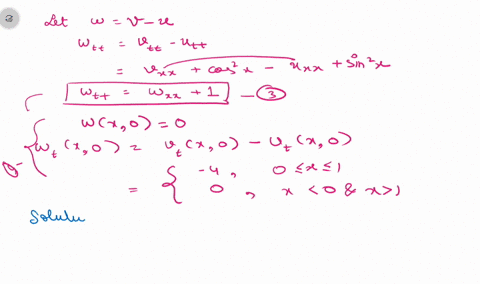 ②
Let w = v - u
w_tt = v_tt - u_tt
= v_xx + cos²x - u_xx + sin²x
w_tt = w_xx + 1 — ③
w(x,0) = 0
w_t(x,0) = v_t(x,0) - u_t(x,0)
= { -4, 0 ≤ x ≤ 1
0, x < 0 & x > 1
Solulu